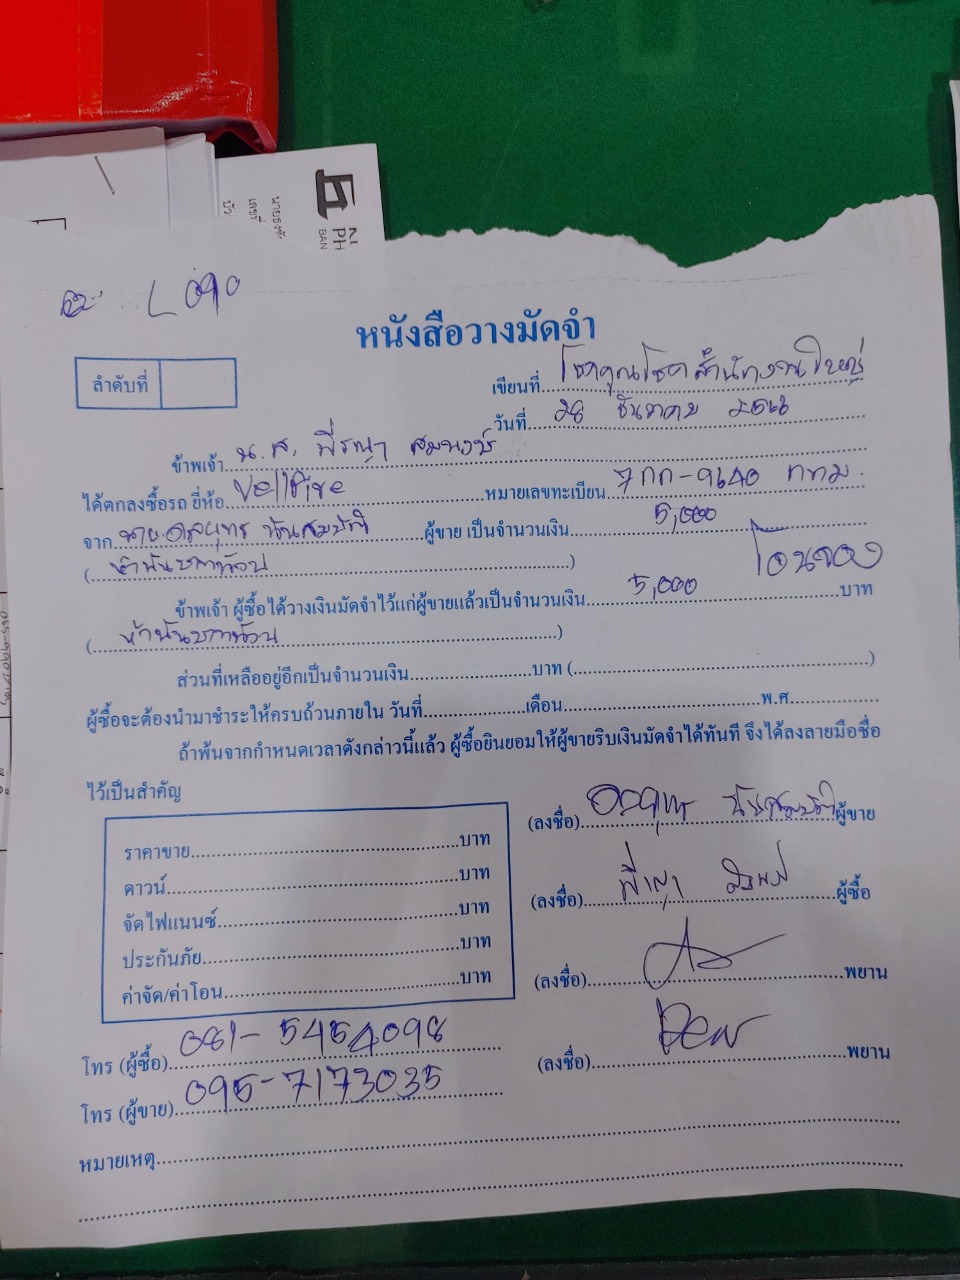 L 090
หนังสือวางมัดจำ
ลำดับที่
เขียนที่ โชคคูณโชค สำนักงานใหญ่
วันที่ 28 ธันวาคม 2568
ข้าพเจ้า น.ส. พี่รญา สมพงษ์
ได้ตกลงซื้อรถ ยี่ห้อ Vellfire หมายเลขทะเบียน 7กก-9640 กทม.
จาก นาย ผู้ขาย เป็นจำนวนเงิน 5,000
(ห้าพันบาทถ้วน)
โอนจอง
ข้าพเจ้า ผู้ซื้อได้วางเงินมัดจำไว้แก่ผู้ขายแล้วเป็นจำนวนเงิน 5,000 บาท
(ห้าพันบาทถ้วน)
ส่วนที่เหลืออยู่อีกเป็นจำนวนเงิน บาท ( )
ผู้ซื้อจะต้องนำมาชำระให้ครบถ้วนภายใน วันที่ เดือน พ.ศ.
ถ้าพ้นจากกำหนดเวลาดังกล่าวนี้แล้ว ผู้ซื้อยินยอมให้ผู้ขายริบเงินมัดจำได้ทันที จึงได้ลงลายมือชื่อ
ไว้เป็นสำคัญ
ราคาขาย บาท
ดาวน์ บาท
จัดไฟแนนซ์ บาท
ประกันภัย บาท
ค่าจัด/ค่าโอน บาท
(ลงชื่อ) ผู้ขาย
(ลงชื่อ) ผู้ซื้อ
(ลงชื่อ) พยาน
(ลงชื่อ) พยาน
โทร (ผู้ซื้อ) 081-5454098
โทร (ผู้ขาย) 095-7173035
หมายเหตุ